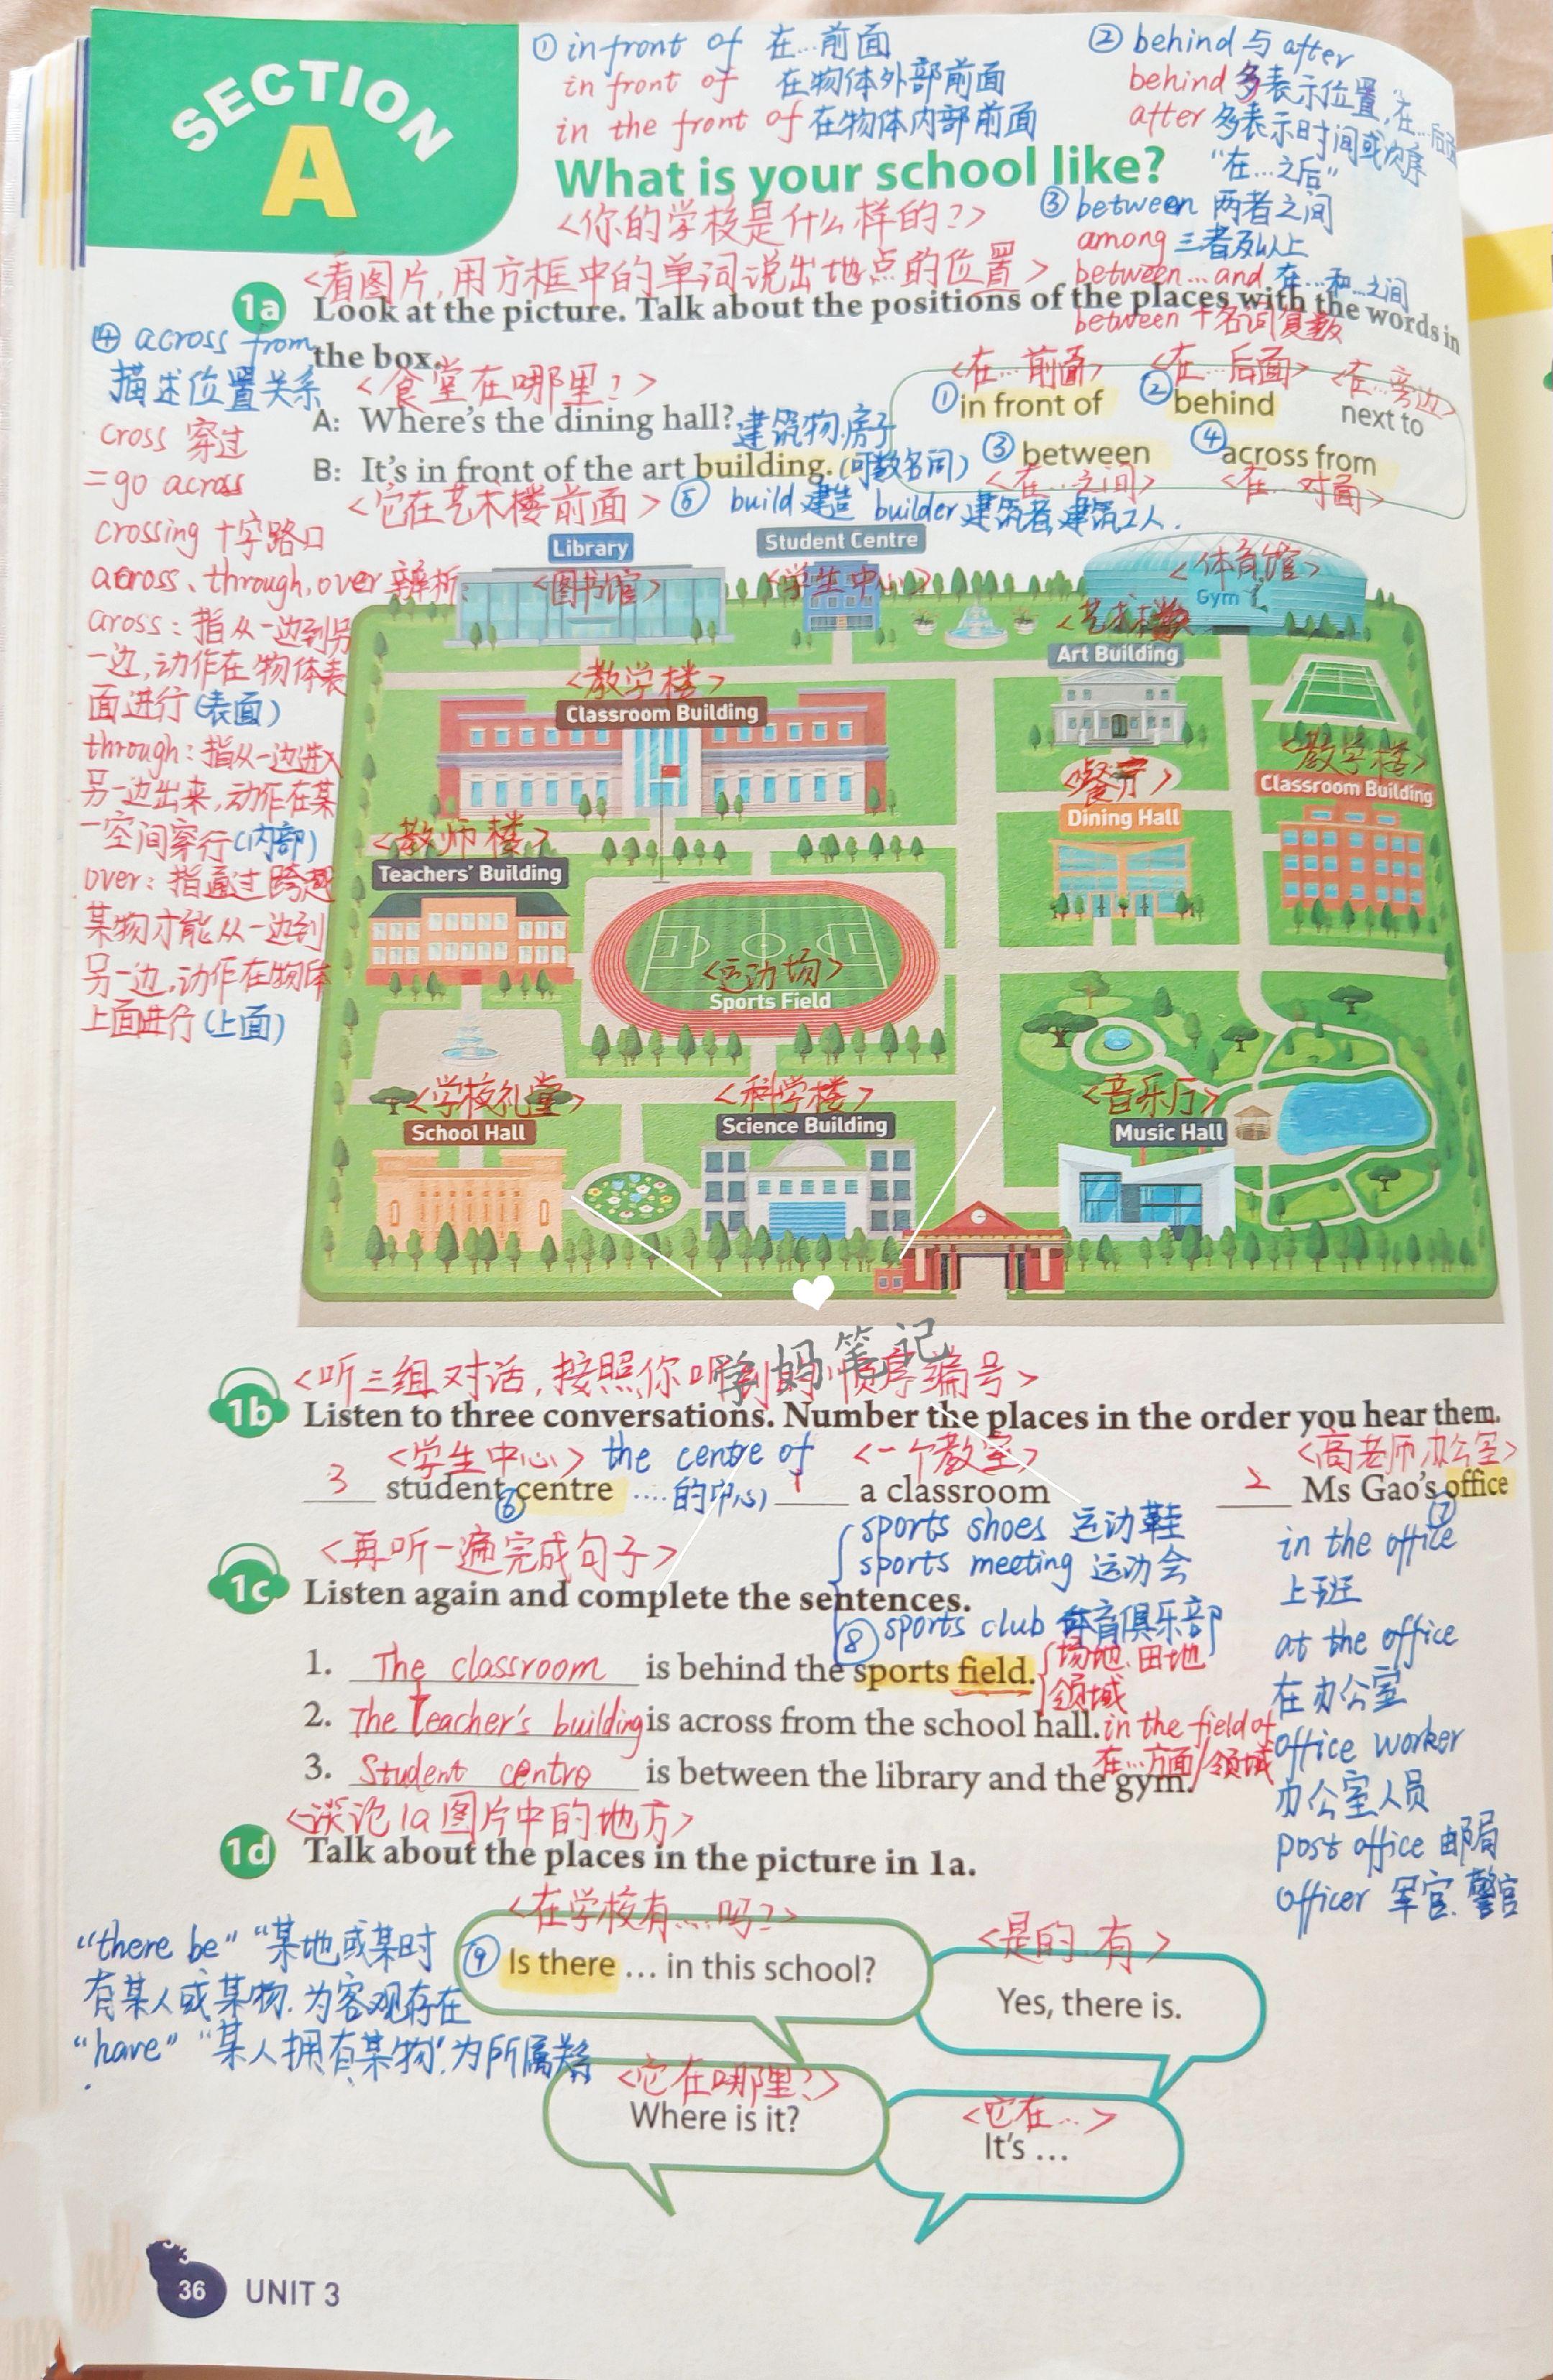 SECTION
A
① in front of 在…前面
in front of 在物体外部前面
in the front of 在物体内部前面
② behind 与 after
behind 多表示位置,"在…后面
after 多表示时间或次序
"在…之后"
What is your school like?
<你的学校是什么样的?>
③ between 两者之间
among 三者及以上
between…and 在…和…之间
between + 名词复数
<看图片,用方框中的单词说出地点的位置>
1a Look at the picture. Talk about the positions of the places with the words in
the box.
<食堂在哪里?>
A: Where's the dining hall? 建筑物,房子
B: It's in front of the art building. (可数名词)
<它在艺术楼前面>
⑤ build 建造 builder 建筑者,建筑工人.
<在…前面> <在…后面> <在…旁边>
① in front of ② behind next to
③ between ④ across from
<在…之间> <在…对面>
④ across from
描述位置关系
cross 穿过
=go across
crossing 十字路口
across、through,over 辨析:
aross: 指从一边到另
一边,动作在物体表
面进行(表面)
through: 指从一边进入
另一边出来,动作在某
一空间穿行(内部)
over: 指通过跨越
某物才能从一边到
另一边,动作在物体
上面进行(上面)
Library
<图书馆>
Student Centre
<学生中心>
<体育馆>
Gym
<艺术楼>
Art Building
<教学楼>
Classroom Building
<餐厅>
Dining Hall
<教学楼>
Classroom Building
<教师楼>
Teachers' Building
<运动场>
Sports Field
<学校礼堂>
School Hall
<科学楼>
Science Building
<音乐厅>
Music Hall
学妈笔记
<听三组对话,按照你听到的顺序编号>
1b Listen to three conversations. Number the places in the order you hear them.
<学生中心> the centre of <一个教室> <高老师办公室>
3 student centre ….的中心) 1 a classroom 2 Ms Gao's office
⑥ ⑦
<再听一遍完成句子>
1c Listen again and complete the sentences.
sports shoes 运动鞋
sports meeting 运动会
⑧ sports club 体育俱乐部
1. The classroom is behind the sports field. 场地.田地
领域
2. The Teacher's building is across from the school hall. in the field of
在…方面/领域
3. Student centre is between the library and the gym.
in the office
上班
at the office
在办公室
office worker
办公室人员
post office 邮局
officer 军官.警官
<谈论1a图片中的地方>
1d Talk about the places in the picture in 1a.
"there be" "某地或某时
有某人或某物.为客观存在
"have" "某人拥有某物".为所属关系
<在学校有……吗?>
⑨ Is there … in this school?
<是的,有>
Yes, there is.
<它在哪里?>
Where is it?
<它在…>
It's …
36 UNIT 3